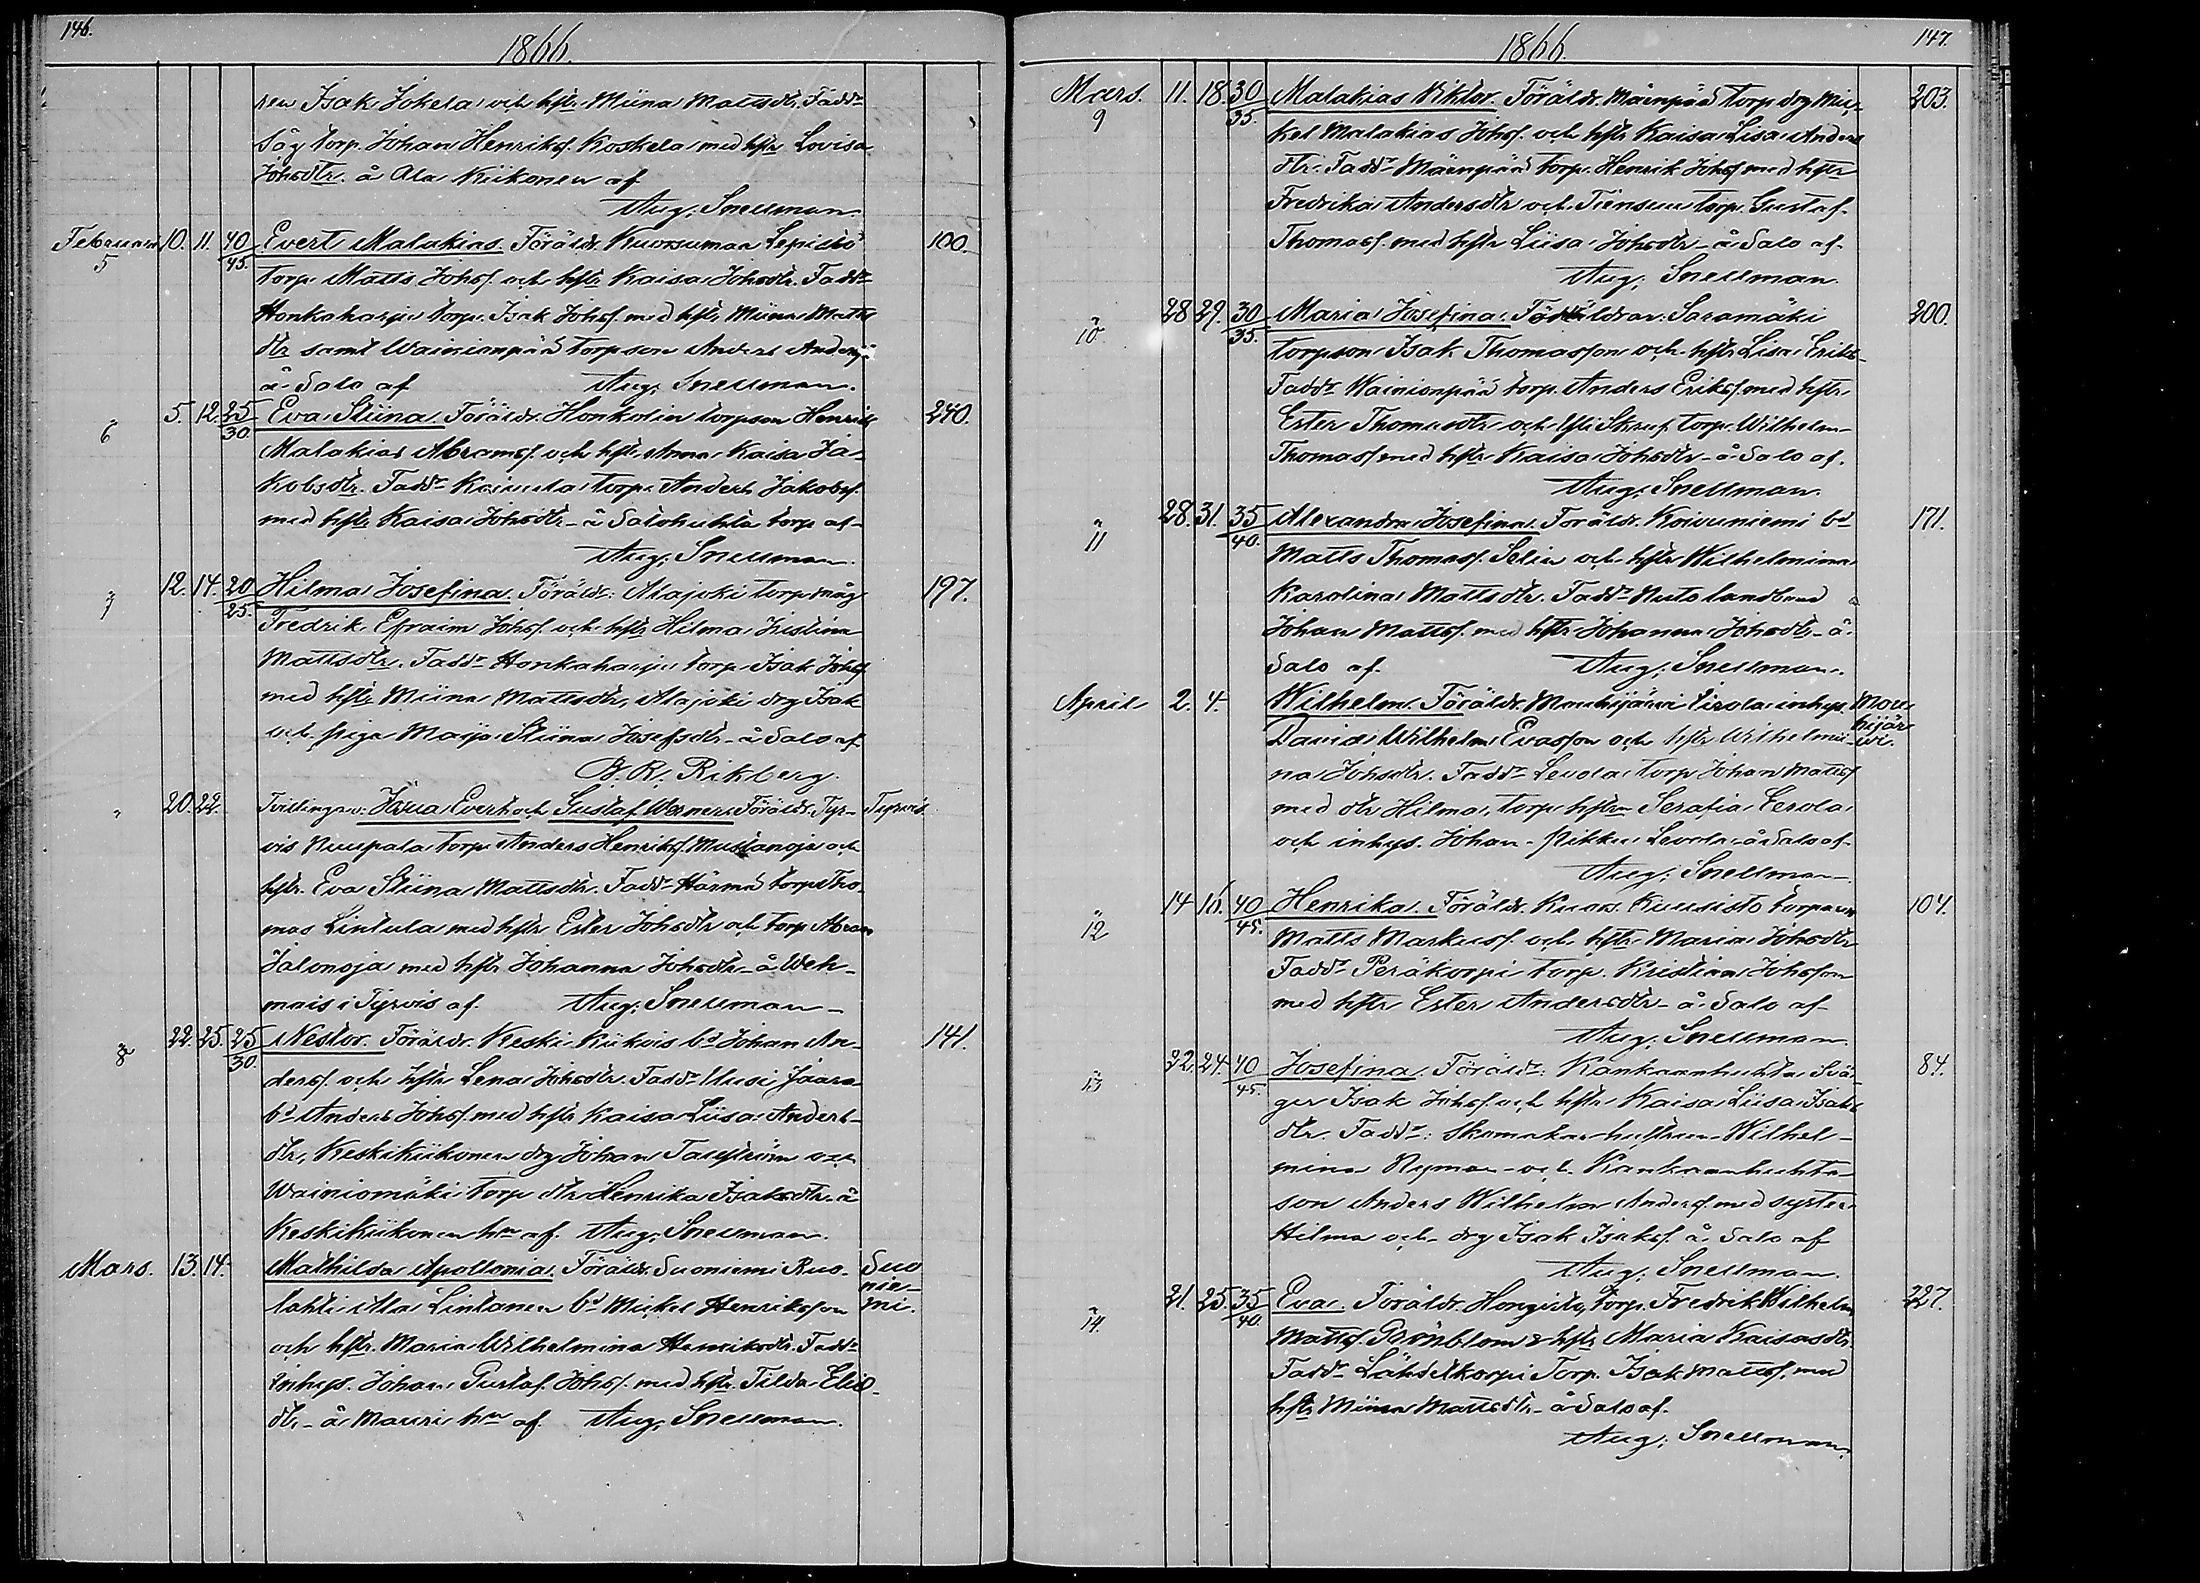 146.
1866.
ren Isak Jokela och hstr Miina Mattsdtr. Fadd:
Såg torp. Johan Henriks. Koskela med hstr Lovisa
Johsdtr. å Ala Kiikonen af
Aug. Snellman.
Februari 10. 11. 40/45. Evert Malakias. Föräldr. Kuorsumaa Lepistö 100.
5 torp. Matts Johs. och hstr Kaisa Johsdtr. Fadd:
Honkaharju torp. Isak Johs. med hstr Miina Matts
dtr samt Wainionpää torpson Anders Anders.
å Salo af Aug. Snellman.
6 5. 12. 25/30. Eva Stiina. Föräldr. Honkolin torpson Henrik 240.
Malakias Abrams. och hstr Anna Kaisa Ja-
kobsdtr. Fadd: torp. Anders Jakobs.
med hstr Kaisa Johsdtr å Salohuhta torp af
Aug. Snellman.
7 12. 14. 20/25. Hilma Josefina. Föräldr: Alajoki torp måg 197.
Fredrik Efraim Johs. och hstr Hilma Kristina
Mattsdtr. Fadd: Honkaharju torp. Isak Johs.
med hstr Miina Mattsdtr, Alajoki drg Isak
och piga Maija Stiina Josefsdtr å Salo af
Rikberg.
" 20. 22. Tvillingar: Josua Evert och Gustaf Werner. Föräldr. Tyr- Tyrvis.
vis Nuupala torp. Anders Henriks. Mustanoja och
hstr. Eva Stiina Mattsdtr. Fadd: Härmä torp. Tho-
mas Lintula med hstr Ester Johsdtr och torp. Abram
Jalonoja med hstr Johanna Johsdtr å Weh-
mais i Tyrvis af Aug. Snellman
8 22. 25. 25/30. Nestor. Föräldr. Keski Kiikois bd Johan An- 141.
derss. och hstr Lena Johsdtr. Fadd: Uusi Jaara
bd Anders Johs. med hstr Kaisa Liisa Anders-
dtr, Keskikiikonen drg Johan och
Wainiomäki torp dtr Henrika Isaksdtr å
Keskikiikonen hn af Aug. Snellman.
Mars. 13. 14. Mathilda Apollonia. Föräldr. Suoniemi Kuo- Suo
lahti Ala Lintanen bd Mickel Henriksson nie-
och hstr. Maria Wilhelmina Henriksdtr. Fadd: mi.
inhys. Johan Gustaf Johs. med hstr. Tilda Elis-
dtr å Mauri hn af Aug. Snellman.
147.
1866.
Mars. 11. 18. 30/35. Malakias Viktor. Föräldr. Mäenpää torp. drg Mic- 203.
9 kel Malakias Johs. och hstr Kaisa Lisa Anders
dtr. Fadd: Mäenpää torp. Henrik Johs. med hstr
Fredrika Andersdtr och Tiensuu torp. Gustaf
Thomass. med hstr Liisa Johsdtr å Salo af
Aug. Snellman.
10 28 29. 30/35. Maria Josefina. Föräldrar: Saramäki 200.
torpson Isak Thomasson och hstr Lisa Eriks-
Fadd: Wainionpää torp. Anders Eriks. med hstr
Ester Thomasdtr och torp. Wilhelm
Thomass. med hstr Kaisa Johsdtr å Salo af
Aug. Snellman.
11 28. 31. 35/40. Alexandra Josefina. Föräldr. Koivuniemi bd 171.
Matts Thomass. Selin och hstr Wilhelmina
Karolina Mattsdtr. Fadd: landbond
Johan Mattss. med hstr Johanna Johsdtr å
Salo af Aug. Snellman.
April 2. 4. Wilhelm. Föräldr. Mouhijärvi Eerola inhys. Mou-
David Wilhelm Evasson och hstr Wilhelmi- hijär
na Johsdtr. Fadd: Levola torp Johan Mattss. vi.
med dtr Hilma, torp. hstr Serafia Eerola
och inhys. Johan Levola å Salo af
Aug. Snellman
12 14 16. 40/45. Henrika. Föräldr. Kuors. Kuusisto torparen 104.
Matts Markuss. och hstr Maria Johsdtr
Fadd: Peräkorpi torp. Kristian Johsson
med hstr Ester Andersdtr å Salo af
Aug. Snellman.
13 22. 24. 40/45. Josefina. Föräldr: Kankaanhuhta Svå- 84.
ger Isak Johs. och hstr Kaisa Liisa Isaks
dtr. Fadd: Skomakar hustrun Wilhel-
mina Nyman och Kankaanhuhta
son Anders Wilhelm Anders. med syster
Hilma och drg Isak Isaks. å Salo af
Aug. Snellman.
14. 21. 25. 35/40. Eva. Föräldr. Hongisto torp. Fredrik Wilhelm 227.
Mattss. Grönblom & hstr Maria Kaisasdtr.
Fadd: Lähdekorpi Torp. Isak Mattss. med
hstr Miina Mattsdtr å Salo af
Aug. Snellman.